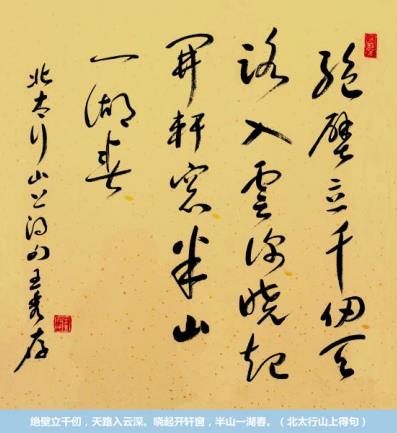 絶壁立千仞天
路入雲深曉起
開軒窓半山
一湖春
北太行山上得句王秀存
绝壁立千仞，天路入云深。晓起开轩窗，半山一湖春。（北太行山上得句）